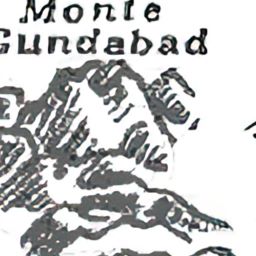 Monte
Gundabad